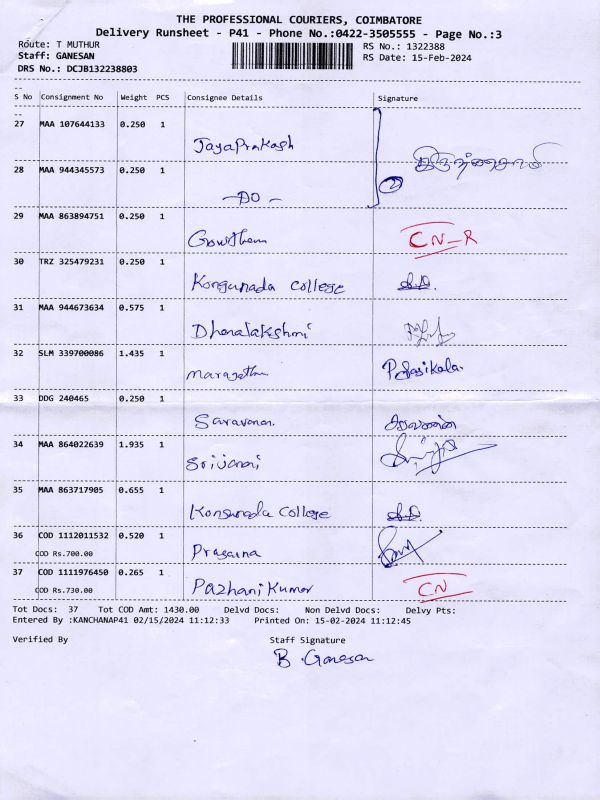 THE PROFESSIONAL COURIERS, COIMBATORE
Delivery Runsheet - P41 - Phone No.:0422-3505555 - Page No.:3
Route: T MUTHUR RS No.: 1322388
Staff: GANESAN RS Date: 15-Feb-2024
DRS No.: DCJB132238803
S No Consignment No Weight PCS Consignee Details Signature
27 MAA 107644133 0.250 1
JayaPrakash
28 MAA 944345573 0.250 1
-DO-
2
29 MAA 863894751 0.250 1
Gowtham CN-R
30 TRZ 325479231 0.250 1
Kongunada College
31 MAA 944673634 0.575 1
Dhanalakshmi
32 SLM 339700086 1.435 1
P. Sasikala.
33 DDG 240465 0.250 1
Saravanan. சரவணன்
34 MAA 864022639 1.935 1
Srivani
35 MAA 863717905 0.655 1
Kongunada College
36 COD 1112011532 0.520 1
COD Rs.700.00 Prasanna
37 COD 1111976450 0.265 1
COD Rs.730.00 Pazhani Kumar CN
Tot Docs: 37 Tot COD Amt: 1430.00 Delvd Docs: Non Delvd Docs: Delvy Pts:
Entered By :KANCHANAP41 02/15/2024 11:12:33 Printed On: 15-02-2024 11:12:45
Verified By Staff Signature
B. Ganesan